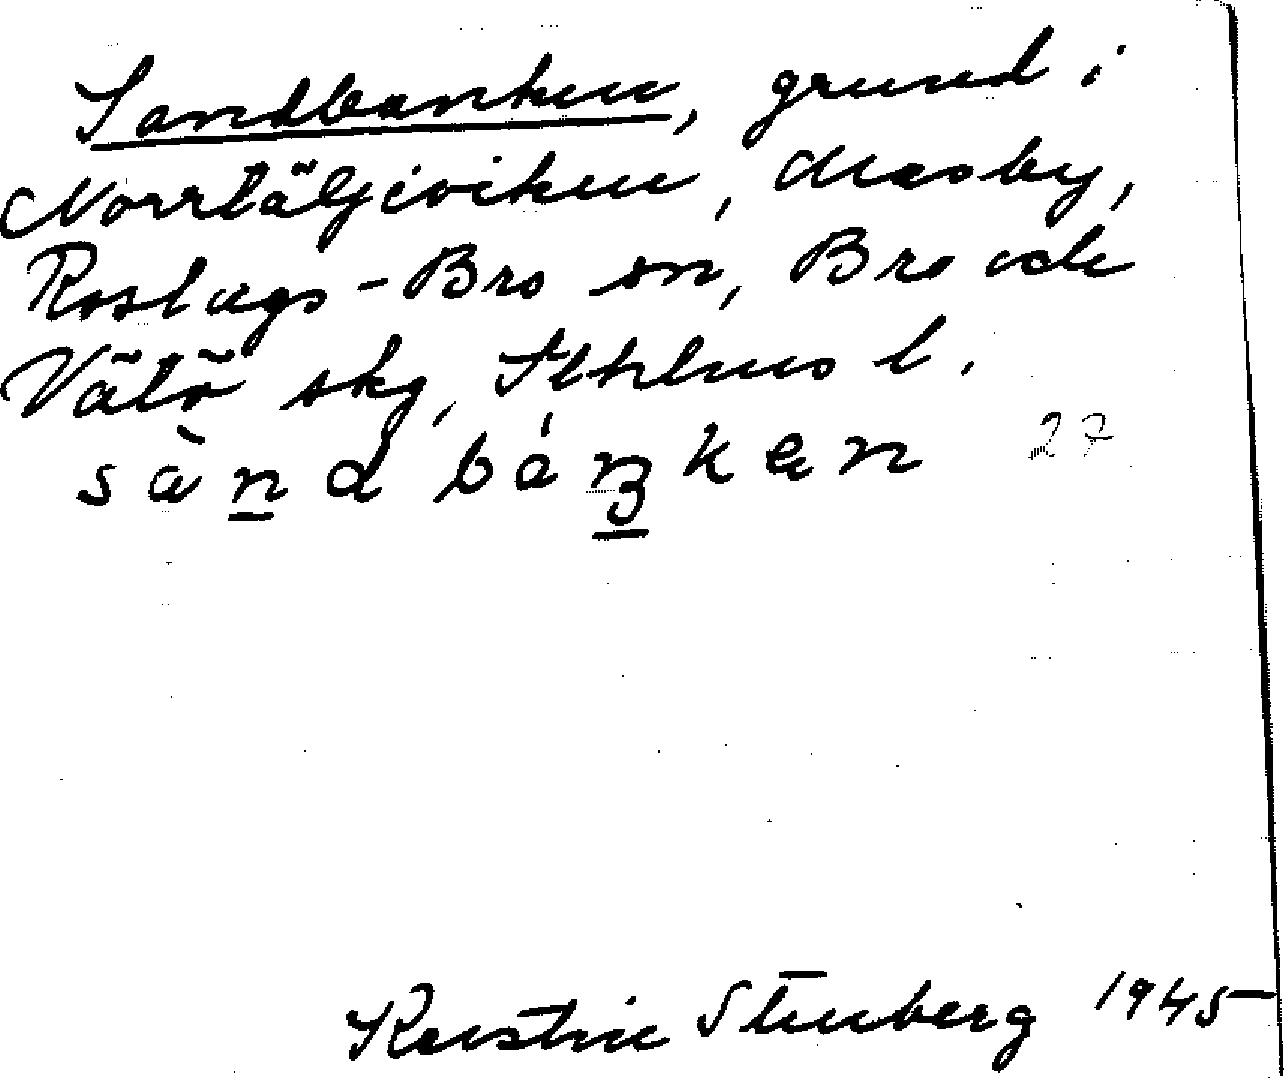 Sandbanken, grund i
Norrtäljeviken, Masby,
Roslags-Bro sn, Bro och
Vätö skg, Sthlms l.
sàndbáŋken 27
Kerstin Stenberg 1945